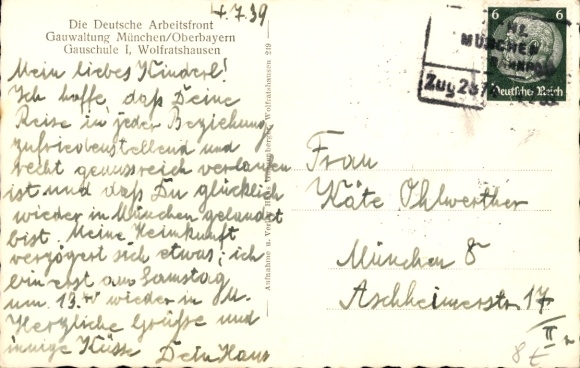 4.7.39
Die Deutsche Arbeitsfront
Gauwaltung München/Oberbayern
Gauschule I, Wolfratshausen
Mein liebes Kinderl!
Ich hoffe, daß Deine
Reise in jeder Beziehung
zufriedenstellend und
recht genussreich verlaufen
ist und daß Du glücklich
wieder in München gelandet
bist. Meine Heimkunft
verzögert sich etwas; ich
bin erst am Samstag
um 13.41 wieder in M.
Herzliche Grüße und
innige Küsse Dein Hans
Aufnahme u. Verlag Wolfratshausen 249
MÜNCHEN
BAHNPOST
Zug 267
6 6
Deutsches Reich
Frau
Käte Ohlwerther
München 8
Aschheimerstr. 17
II
8 t